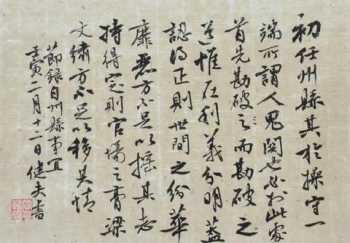 初任州縣其於操守一
端所謂人鬼関也必於此處
首先勘破之而勘破之
道惟在利義分明蓋
認得正則世間之紛華
靡麗方不足以搖其志
持得定則官場之膏粱
文繡方不足以移其情
節錄自州縣事宜
壬寅二月十二日健夫書